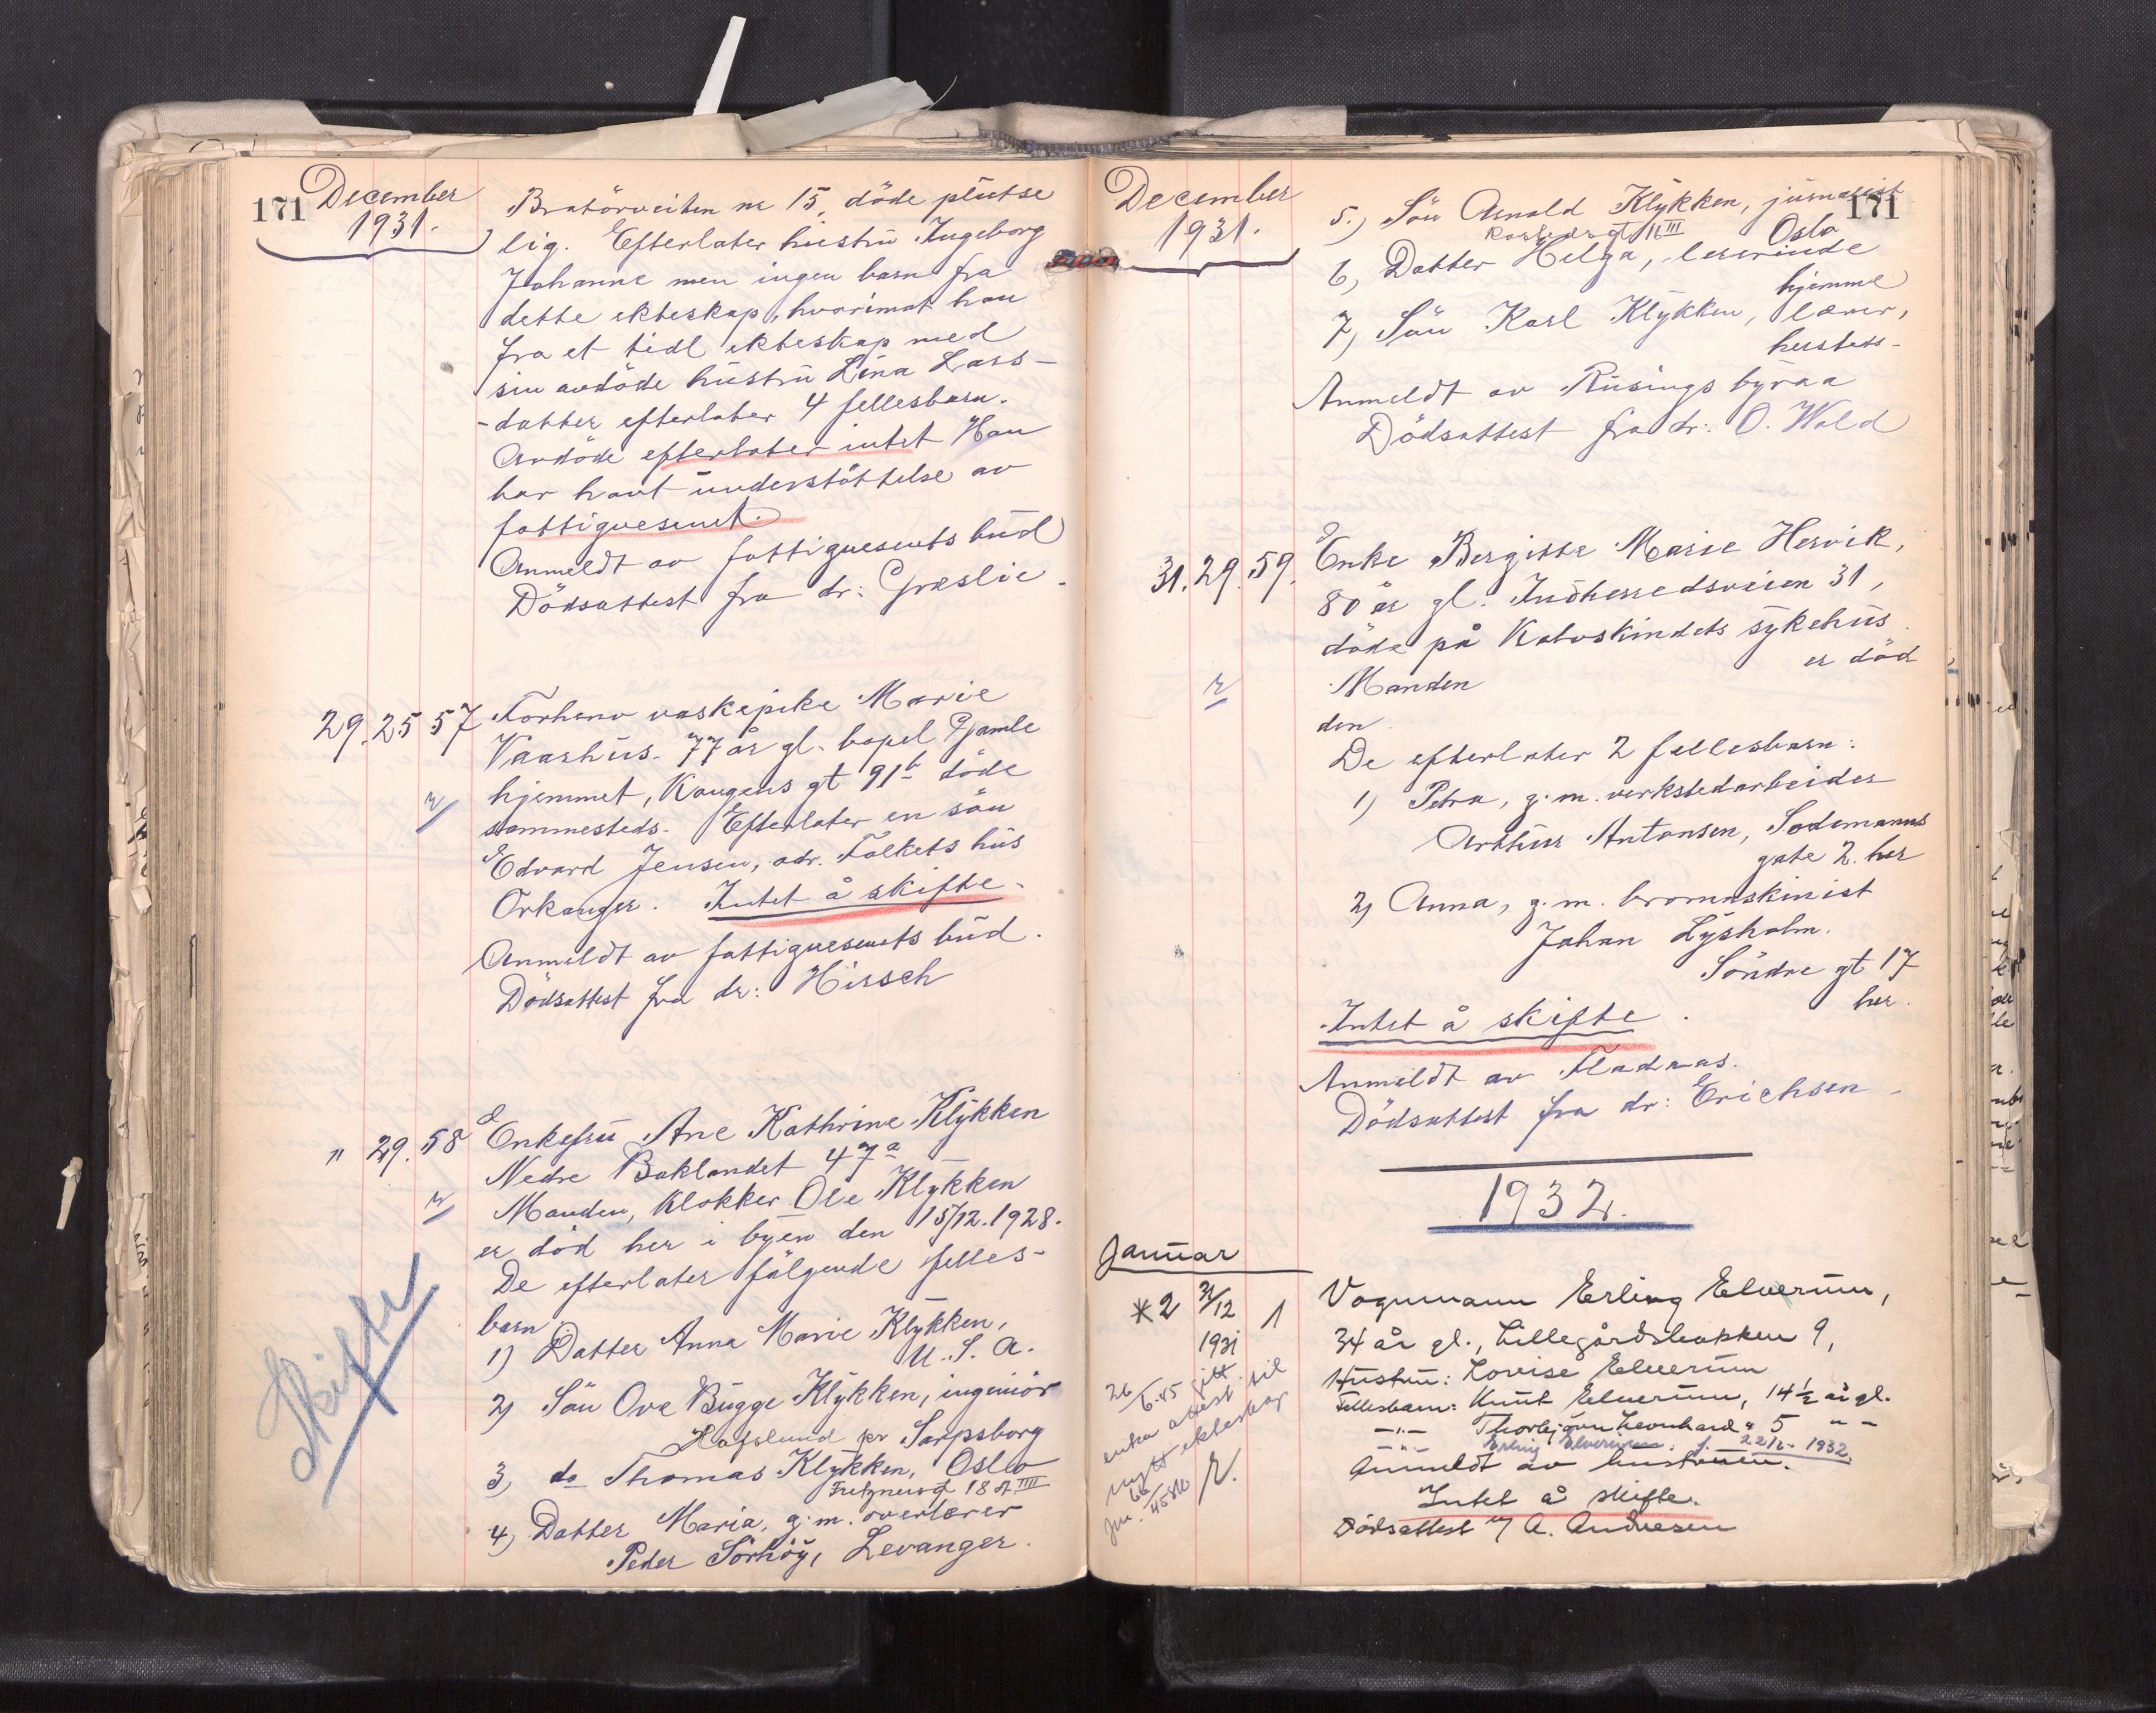 171
December
1931.
Bratörveiten nr 15, döde plutse
lig. Efterlater hustru Ingeborg
Johanne men ingen barn fra
dette ekteskap, hvorimot han
fra et tidl ekteskap med
sin avdöde hustru Lina Lars-
-datter efterlater 4 fellesbarn.
Avdöde efterlater intet Han
har havt understöttelse av
fattigvesenet.
Anmeldt av fattigvesenets bud
Dödsattest fra dr: Græslie.
29. 25 57 Forhenv vaskepike Marie
Vaarhus. 77 år gl. bopel Gamle
hjemmet, Kongens gt 91b döde
sammesteds. Efterlater en sön
Edvard Jensen, adr. Folkets hus
Orkanger. Intet å skifte.
Anmeldt av fattigvesenets bud.
Dödsattest fra dr: Hirsch
" 29. 58 Enkefru Ane Kathrine Klykken
Nedre Baklandet 47a
Manden, Klokker Ole Klykken
er död her i byen den 15/12.1928.
De efterlater fölgende felles-
barn
1) Datter Anna Marie Klykken,
U.S.A.
2) Sön Ove Bugge Klykken, ingeniör
Hafslund pr Sarpsborg
3) do Thomas Klykken, Oslo
18
4) Datter Maria, g.m. overlærer
Peder Sörhöy, Levanger.
Skifte
December
1931.
171
5.) Sön Arnold Klykken, jurnalist
Oslo
6) Datter Helga, lererinde
hjemme
7) Sön Karl Klykken, lærer,
hersteds-
Anmeldt av Rusings byraa
Dödsattest fra dr: O. Wold
31. 29. 59. Enke Bergitte Marie Hervik,
80 år gl. Indherredsveien 31,
döde på Kalvskindets sykehus.
Manden er död
den
De efterlater 2 fellesbarn:
1) Petra, g.m. verkstedarbeider
Arthur Antonsen, Sodemanns
gate 2. her
2) Anna, g.m.
Johan Lysholm.
Söndre gt 17
her.
Intet å skifte.
Anmeldt av Fladaas.
Dödsattest fra dr: Erichsen
1932.
Januar
*2 31/12 1
1931
Vognmann Erling Elverum,
34 år gl., Lillegårdsbakken 9,
Hustru: Lovise Elverum
Fellesbarn: Knut Elverum, 14½ år gl.
-"- Thorbjörn Leonhard " 5 " -
-"- Erling Elverum f. 1932
Anmeldt av hustruen.
Intet å skifte.
Dödsattest v/ A. Andresen
26/6.45 gitt
enka attest til
nytt ekteskap